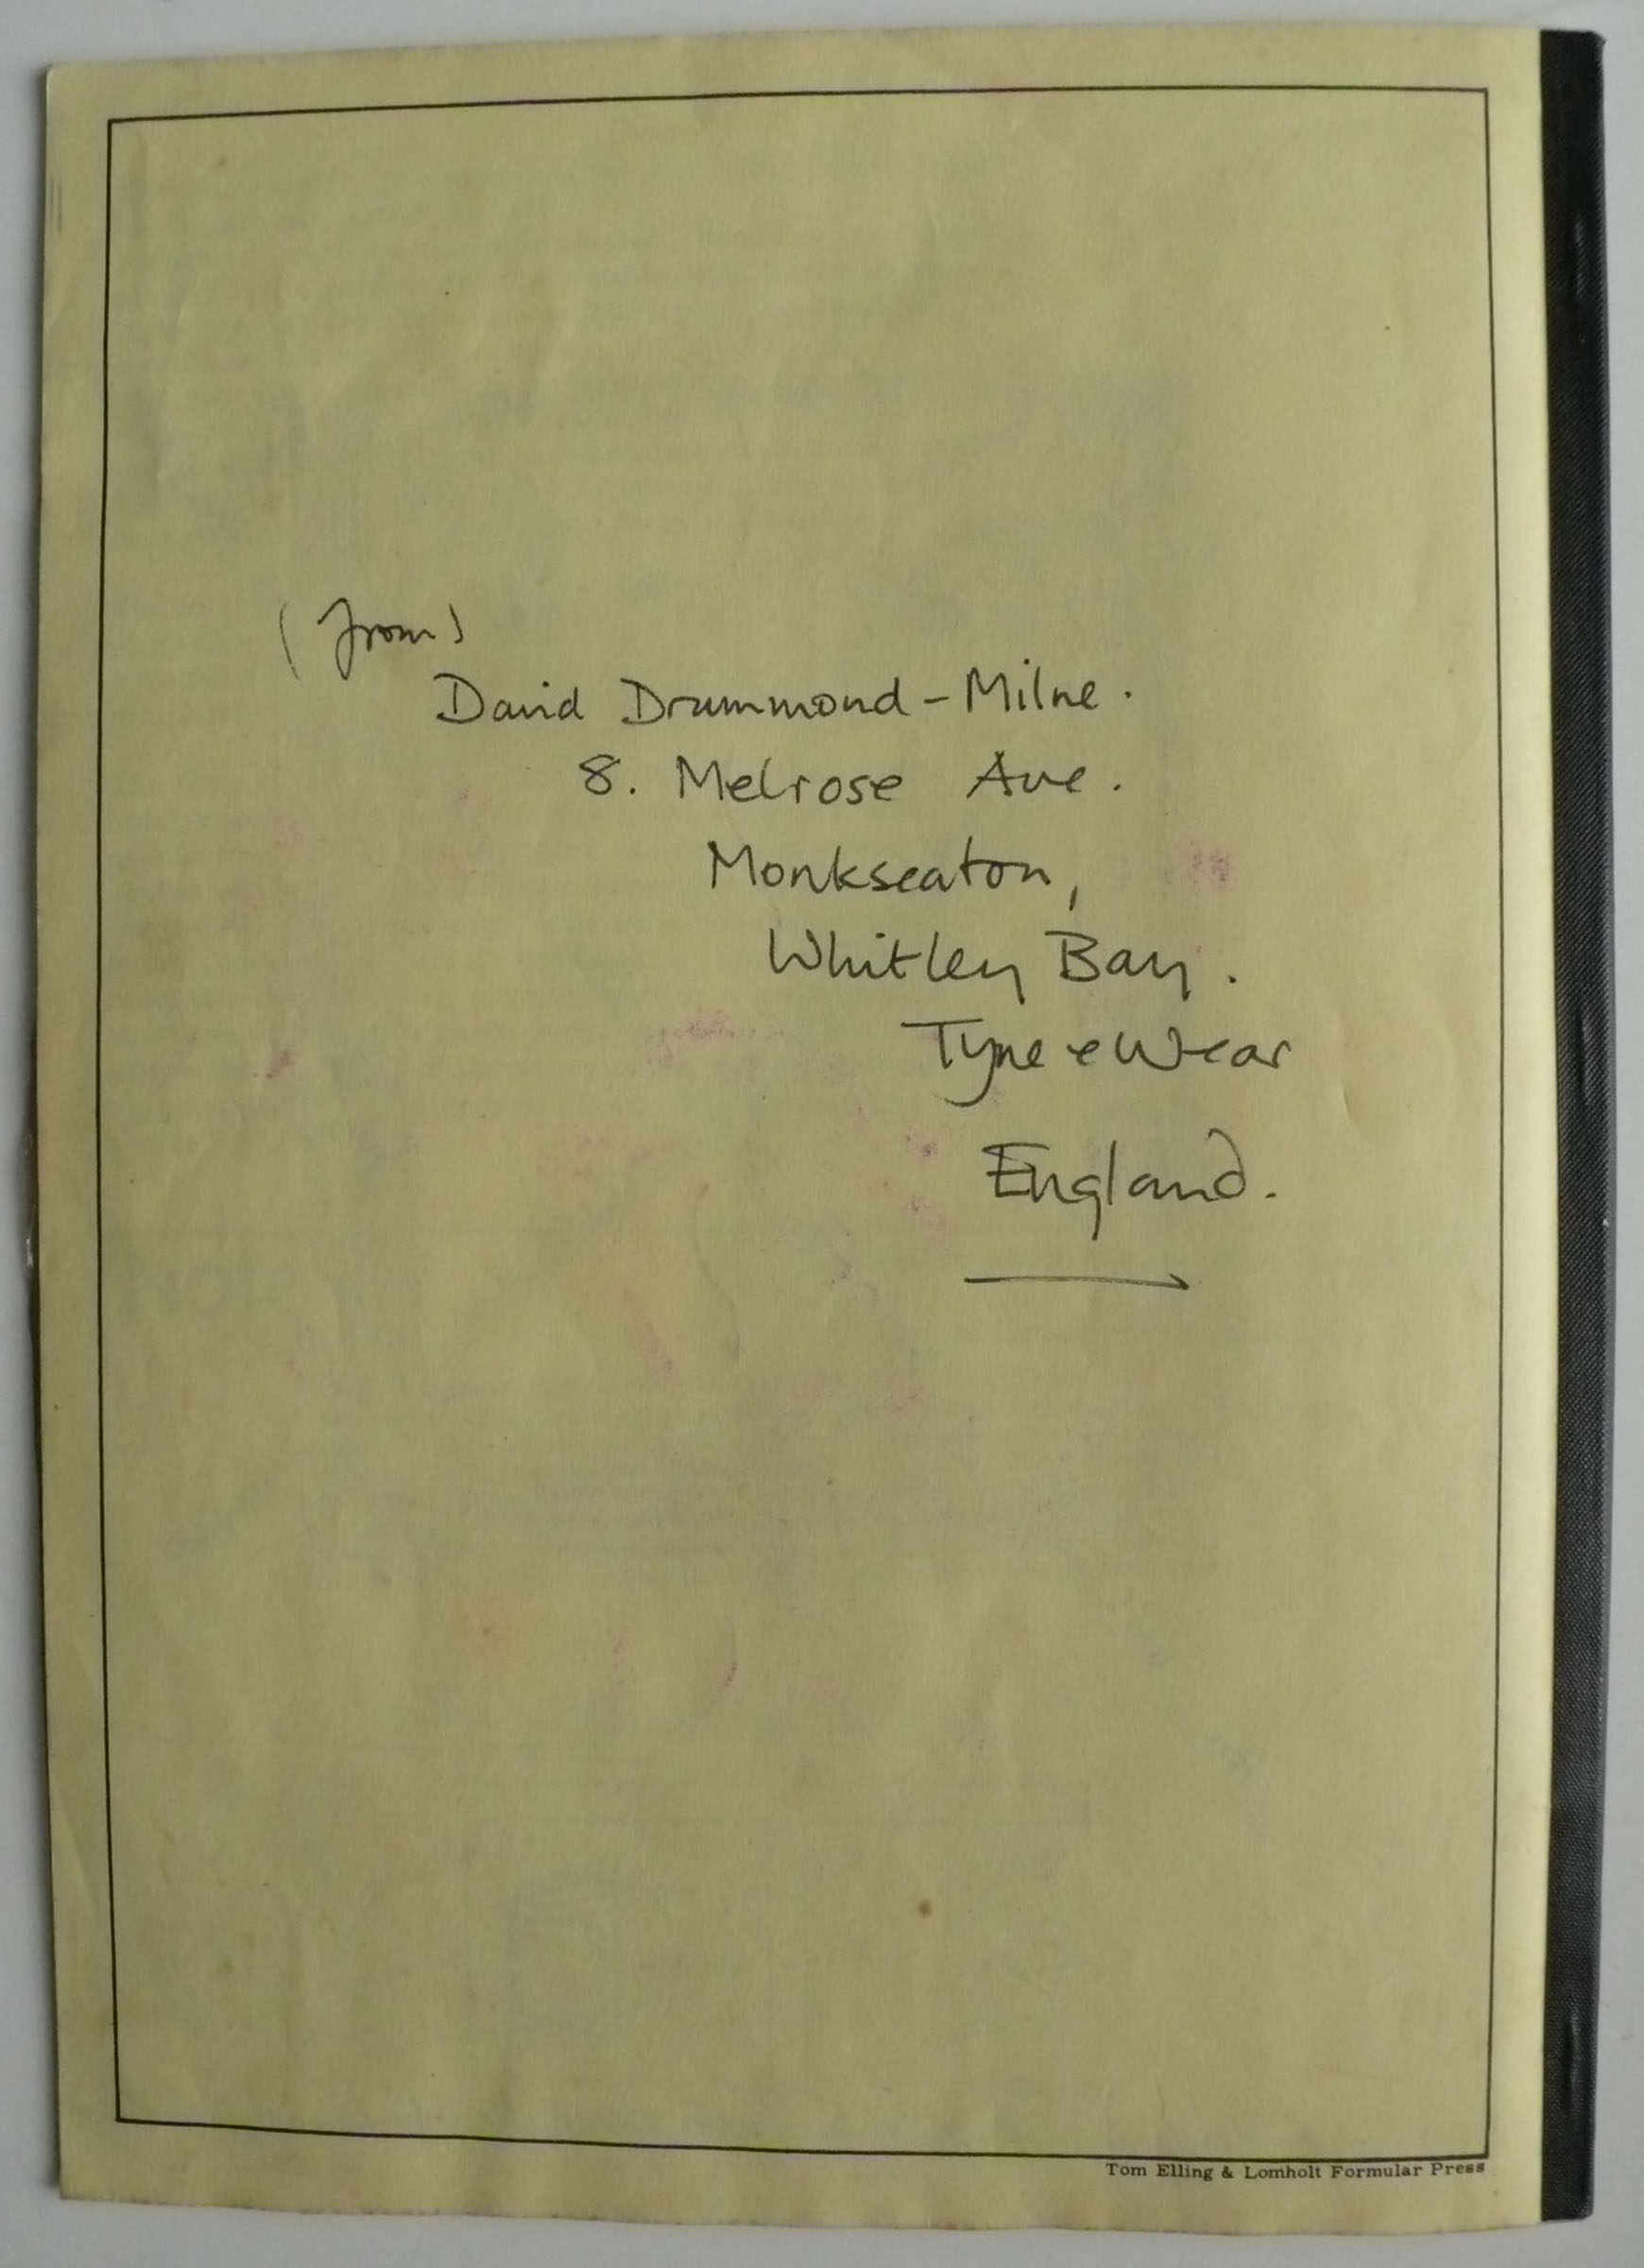 (from)
David Drummond-Milne.
8. Melrose Ave.
Monkseaton,
Whitley Bay.
Tyne & Wear
England.
Tom Elling & Lomholt Formular Press